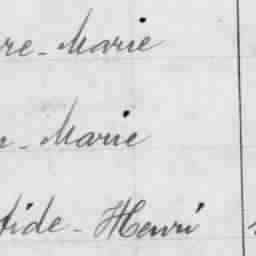 re-Marie
- Marie
tide-Henri